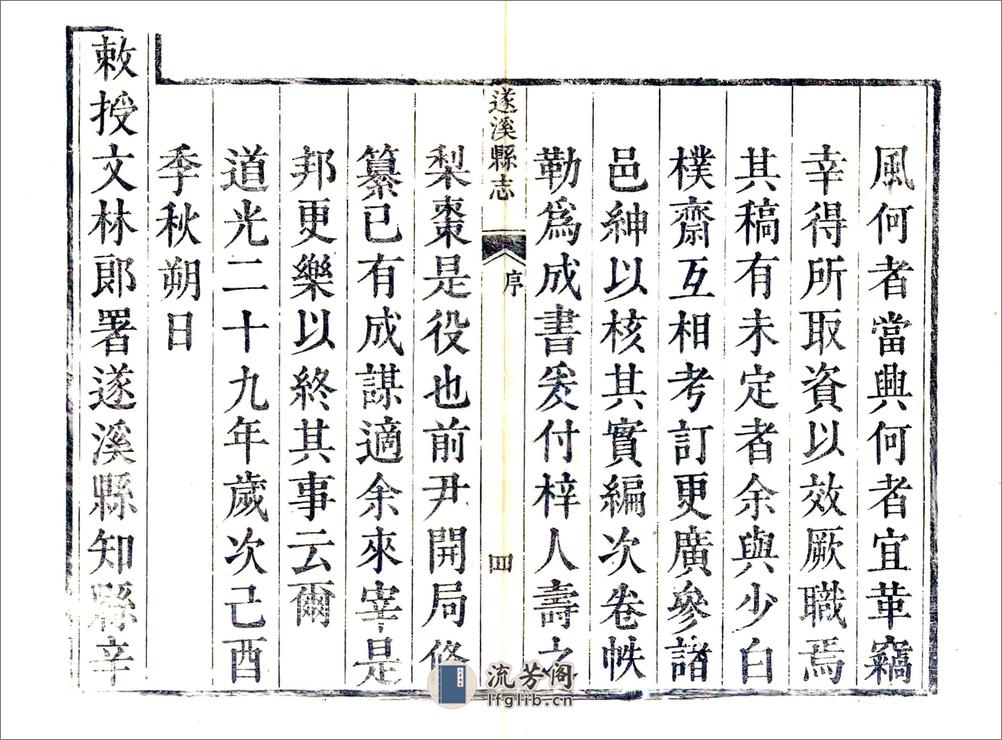 風何者當興何者宜革竊
幸得所取資以效厥職焉
其稿有未定者余與少白
樸齋互相考訂更廣參諸
邑紳以核其實編次卷帙
勒爲成書爰付梓人壽之
遂溪縣志 序 四
梨棗是役也前尹開局修
纂已有成謀適余來宰是
邦更樂以終其事云爾
道光二十九年歲次己酉
季秋朔日
敕授文林郎署遂溪縣知縣辛
流芳阁
lfglib.cn